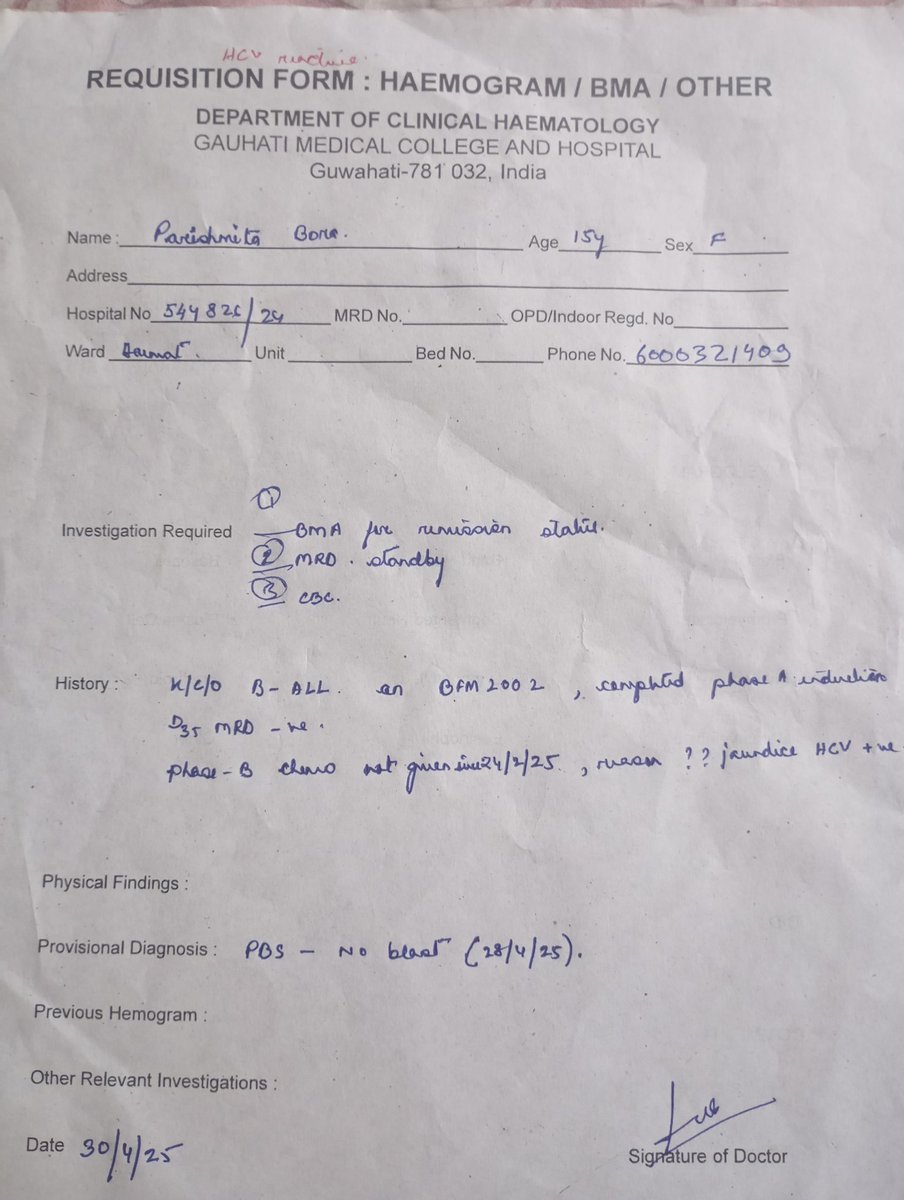 HCV reactive.
REQUISITION FORM : HAEMOGRAM / BMA / OTHER
DEPARTMENT OF CLINICAL HAEMATOLOGY
GAUHATI MEDICAL COLLEGE AND HOSPITAL
Guwahati-781 032, India
Name : Parishmita Bora. Age 15y Sex F
Address
Hospital No 544826/24 MRD No. OPD/Indoor Regd. No
Ward Haemat. Unit Bed No. Phone No. 6000321409
①
Investigation Required BMA for remission status.
② MRD. standby
③ CBC.
History : K/C/O B-ALL. on BFM 2002, completed phase A induction
D35 MRD -ve.
phase-B chemo not given since 24/2/25., reason ?? jaundice HCV +ve
Physical Findings :
Provisional Diagnosis : PBS - No blast (28/4/25).
Previous Hemogram :
Other Relevant Investigations :
Date 30/4/25
Signature of Doctor